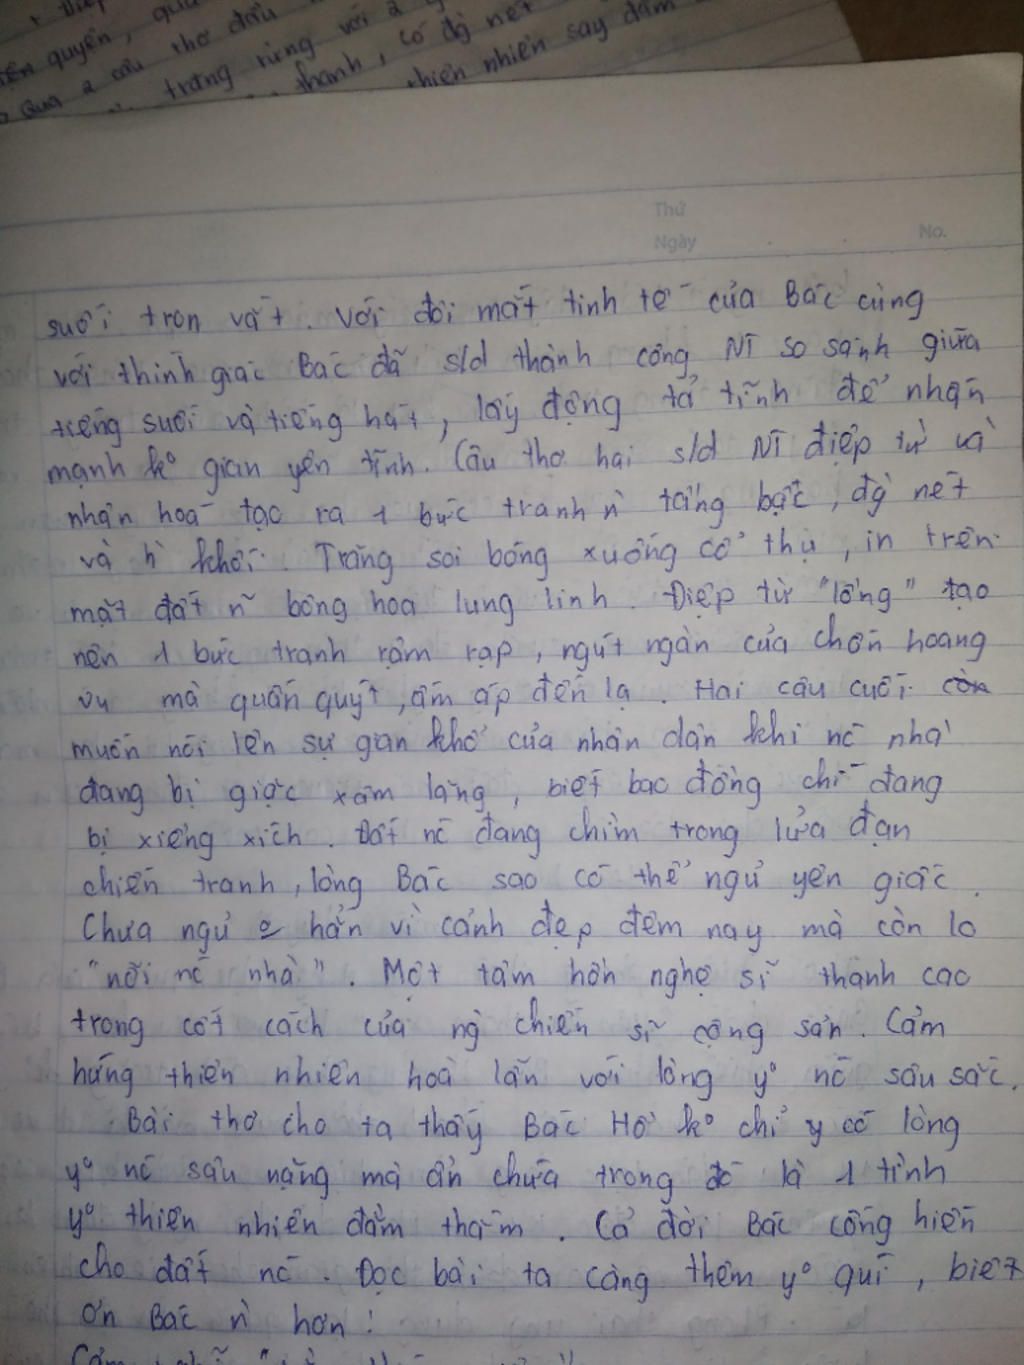 quyền, qua
Qua 2 câu thơ đầu
trăng rừng với
thanh, có độ nét
thiên nhiên say đắm
Thứ
Ngày
No.
suối tron vắt. Với đôi mắt tinh tế của Bác cùng
với thính giác Bác đã s/d thành công NT so sánh giữa
tiếng suối và tiếng hát, lấy động tả tĩnh để nhấn
mạnh ko gian yên tĩnh. Câu thơ hai s/d NT điệp từ và
nhân hoá tạo ra 1 bức tranh n` tầng bậc, đg` nét
và h` khối. Trăng soi bóng xuống cổ thụ, in trên
mặt đất n~ bông hoa lung linh. Điệp từ "lồng" tạo
nên 1 bức tranh rậm rạp, ngút ngàn của chốn hoang
vu mà quấn quýt, ấm áp đến lạ. Hai câu cuối còn
muốn nói lên sự gian khổ của nhân dân khi nc nhà
đang bị giặc xâm lăng, biết bao đồng chí đang
bị xiềng xích. Đất nc đang chìm trong lửa đạn
chiến tranh, lòng Bác sao có thể ngủ yên giấc.
Chưa ngủ hẳn vì cảnh đẹp đêm nay mà còn lo
"nỗi nc nhà". Một tâm hồn nghệ sĩ thanh cao
trong cốt cách của ng` chiến sĩ cộng sản. Cảm
hứng thiên nhiên hoà lẫn với lòng yo nc sâu sắc.
Bài thơ cho ta thấy Bác Hồ ko chỉ có lòng
yo nc sâu nặng mà ẩn chứa trong đó là 1 tình
yo thiên nhiên đằm thắm. Cả đời Bác cống hiến
cho đất nc. Đọc bài ta càng thêm yo quí, biết
ơn Bác n` hơn!